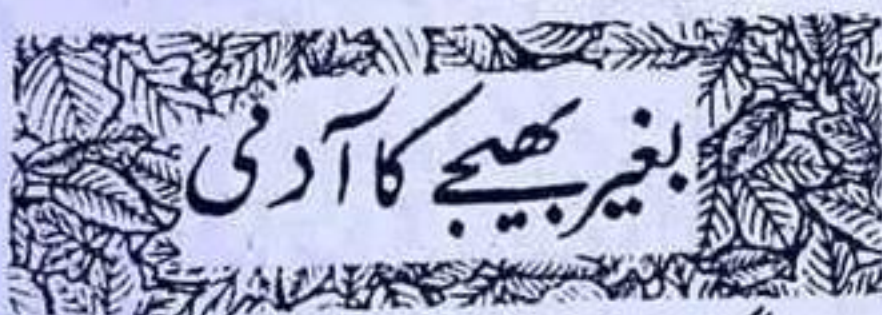 بغیر بھیجے کا آدمی